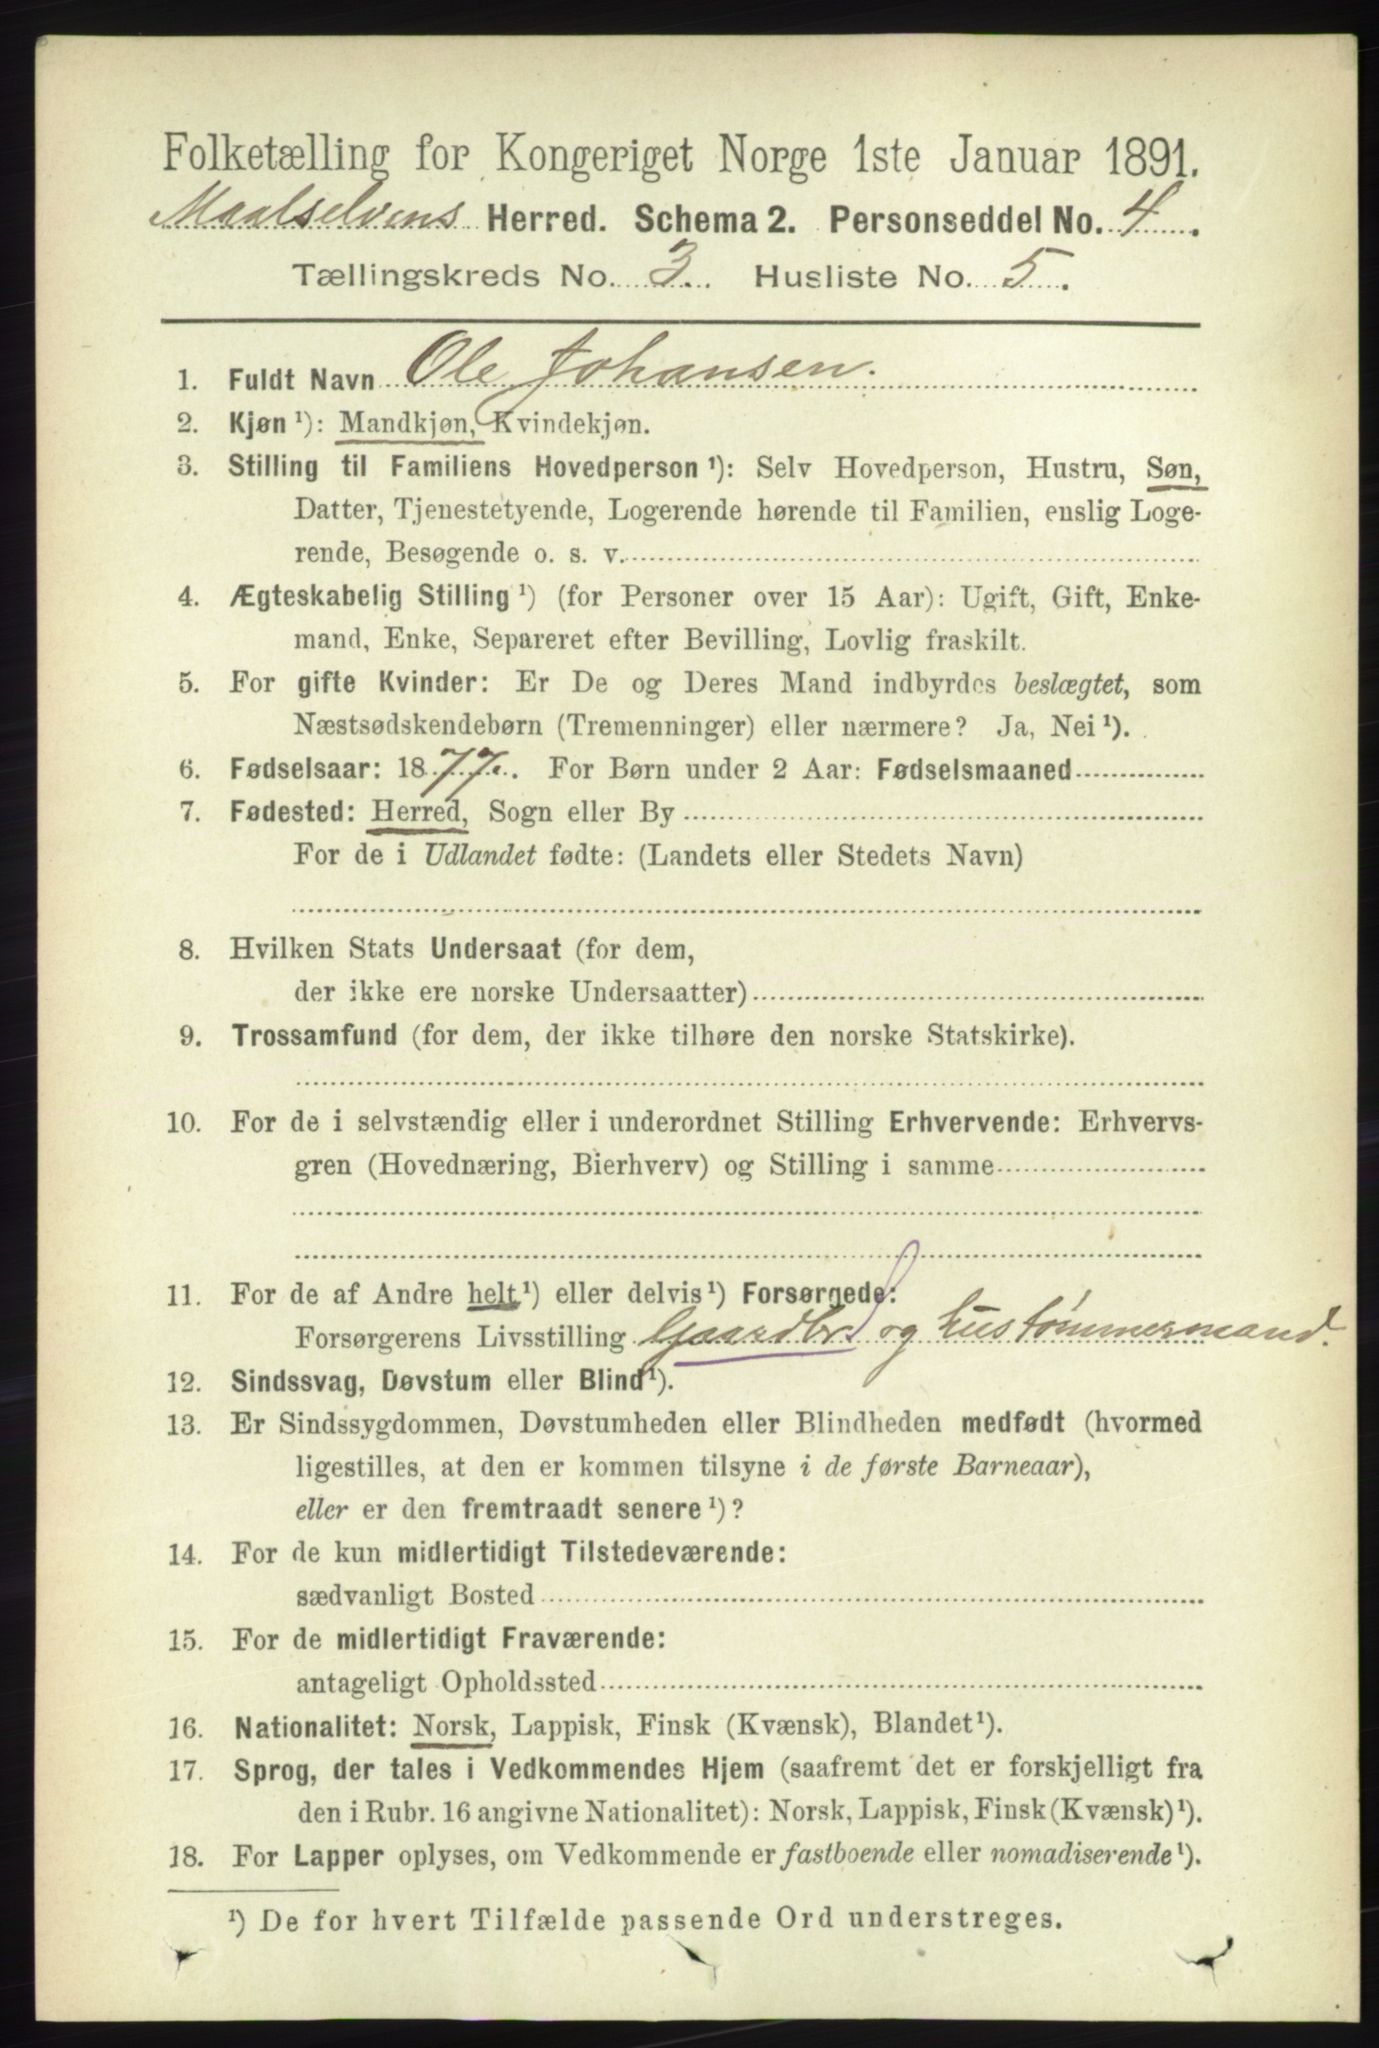 Folketælling for Kongeriget Norge 1ste Januar 1891.
Maalselvens Herred. Schema 2. Personseddel No. 4.
Tællingskreds No. 3. Husliste No. 5.
1. Fuldt Navn Ole Johansen.
2. Kjøn ¹): Mandkjøn, Kvindekjøn.
3. Stilling til Familiens Hovedperson ¹): Selv Hovedperson, Hustru, Søn,
Datter, Tjenestetyende, Logerende hørende til Familien, enslig Loge-
rende, Besøgende o. s. v.
4. Ægteskabelig Stilling ¹) (for Personer over 15 Aar): Ugift, Gift, Enke-
mand, Enke, Separeret efter Bevilling, Lovlig fraskilt.
5. For gifte Kvinder: Er De og Deres Mand indbyrdes beslægtet, som
Næstsødskendebørn (Tremenninger) eller nærmere? Ja, Nei ¹).
6. Fødselsaar: 1877. For Børn under 2 Aar: Fødselsmaaned
7. Fødested: Herred, Sogn eller By
For de i Udlandet fødte: (Landets eller Stedets Navn)
8. Hvilken Stats Undersaat (for dem,
der ikke ere norske Undersaatter)
9. Trossamfund (for dem, der ikke tilhøre den norske Statskirke).
10. For de i selvstændig eller i underordnet Stilling Erhvervende: Erhvervs-
gren (Hovednæring, Bierhverv) og Stilling i samme
11. For de af Andre helt ¹) eller delvis ¹) Forsørgede:
Forsørgerens Livsstilling Gaardbr og hustømmermand.
12. Sindssvag, Døvstum eller Blind ¹).
13. Er Sindssygdommen, Døvstumheden eller Blindheden medfødt (hvormed
ligestilles, at den er kommen tilsyne i de første Barneaar),
eller er den fremtraadt senere ¹)?
14. For de kun midlertidigt Tilstedeværende:
sædvanligt Bosted
15. For de midlertidigt Fraværende:
antageligt Opholdssted
16. Nationalitet: Norsk, Lappisk, Finsk (Kvænsk), Blandet ¹).
17. Sprog, der tales i Vedkommendes Hjem (saafremt det er forskjelligt fra
den i Rubr. 16 angivne Nationalitet): Norsk, Lappisk, Finsk (Kvænsk) ¹).
18. For Lapper oplyses, om Vedkommende er fastboende eller nomadiserende ¹).
¹) De for hvert Tilfælde passende Ord understreges.